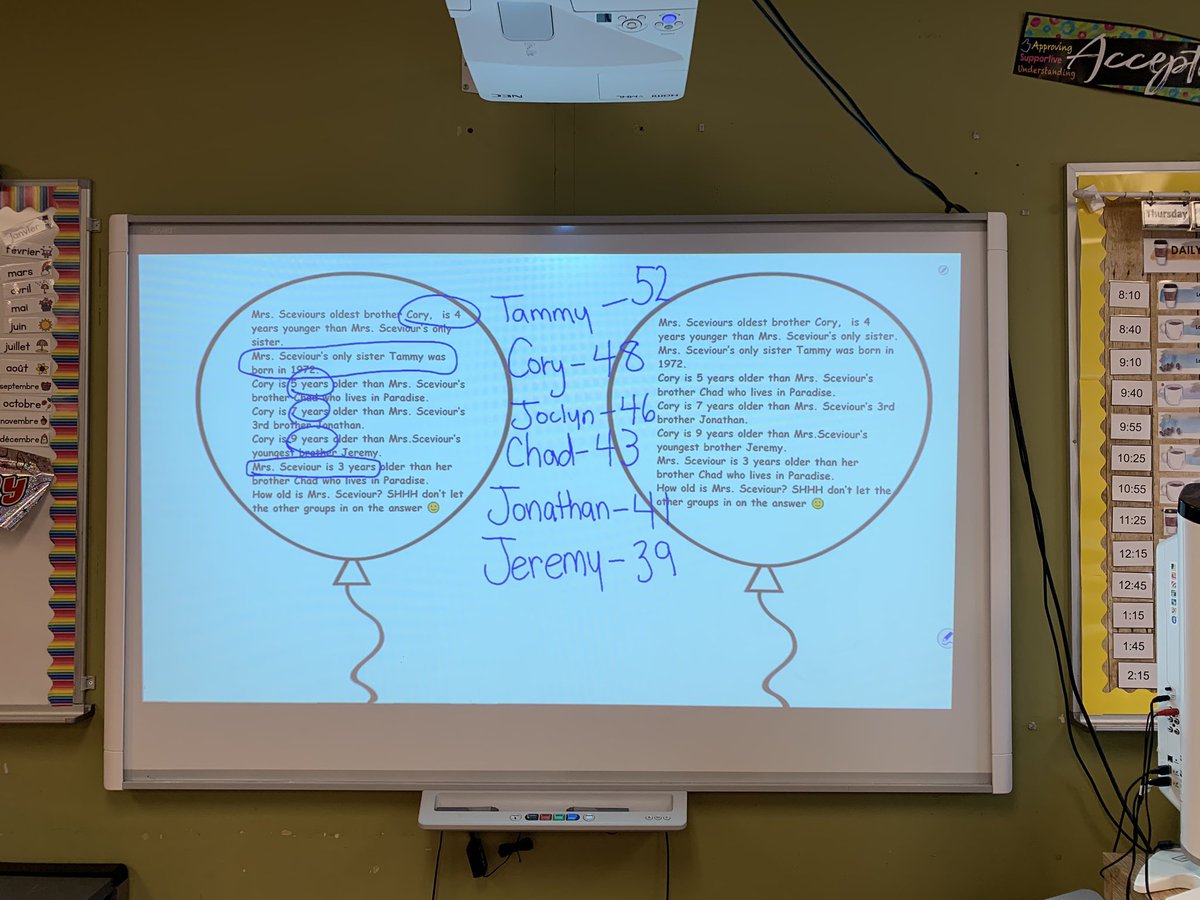 NEC
HDMI
MHL
Approving
Supportive
Understanding
Accept
janvier
février
mars
avril
mai
juin
juillet
août
septembre
octobre
novembre
décembre
Mrs. Sceviours oldest brother Cory, is 4
years younger than Mrs. Sceviour's only
sister.
Mrs. Sceviour's only sister Tammy was
born in 1972.
Cory is 5 years older than Mrs. Sceviour's
brother Chad who lives in Paradise.
Cory is 7 years older than Mrs. Sceviour's
3rd brother Jonathan.
Cory is 9 years older than Mrs.Sceviour's
youngest brother Jeremy.
Mrs. Sceviour is 3 years older than her
brother Chad who lives in Paradise.
How old is Mrs. Sceviour? SHHH don't let
the other groups in on the answer
Tammy - 52
Cory - 48
Joclyn - 46
Chad - 43
Jonathan - 41
Jeremy - 39
Mrs. Sceviours oldest brother Cory, is 4
years younger than Mrs. Sceviour's only sister.
Mrs. Sceviour's only sister Tammy was born in
1972.
Cory is 5 years older than Mrs. Sceviour's
brother Chad who lives in Paradise.
Cory is 7 years older than Mrs. Sceviour's 3rd
brother Jonathan.
Cory is 9 years older than Mrs.Sceviour's
youngest brother Jeremy.
Mrs. Sceviour is 3 years older than her
brother Chad who lives in Paradise.
How old is Mrs. Sceviour? SHHH don't let the
other groups in on the answer
Thursday
DAILY
8:10
8:40
9:10
9:40
9:55
10:25
10:55
11:25
12:15
12:45
1:15
1:45
2:15